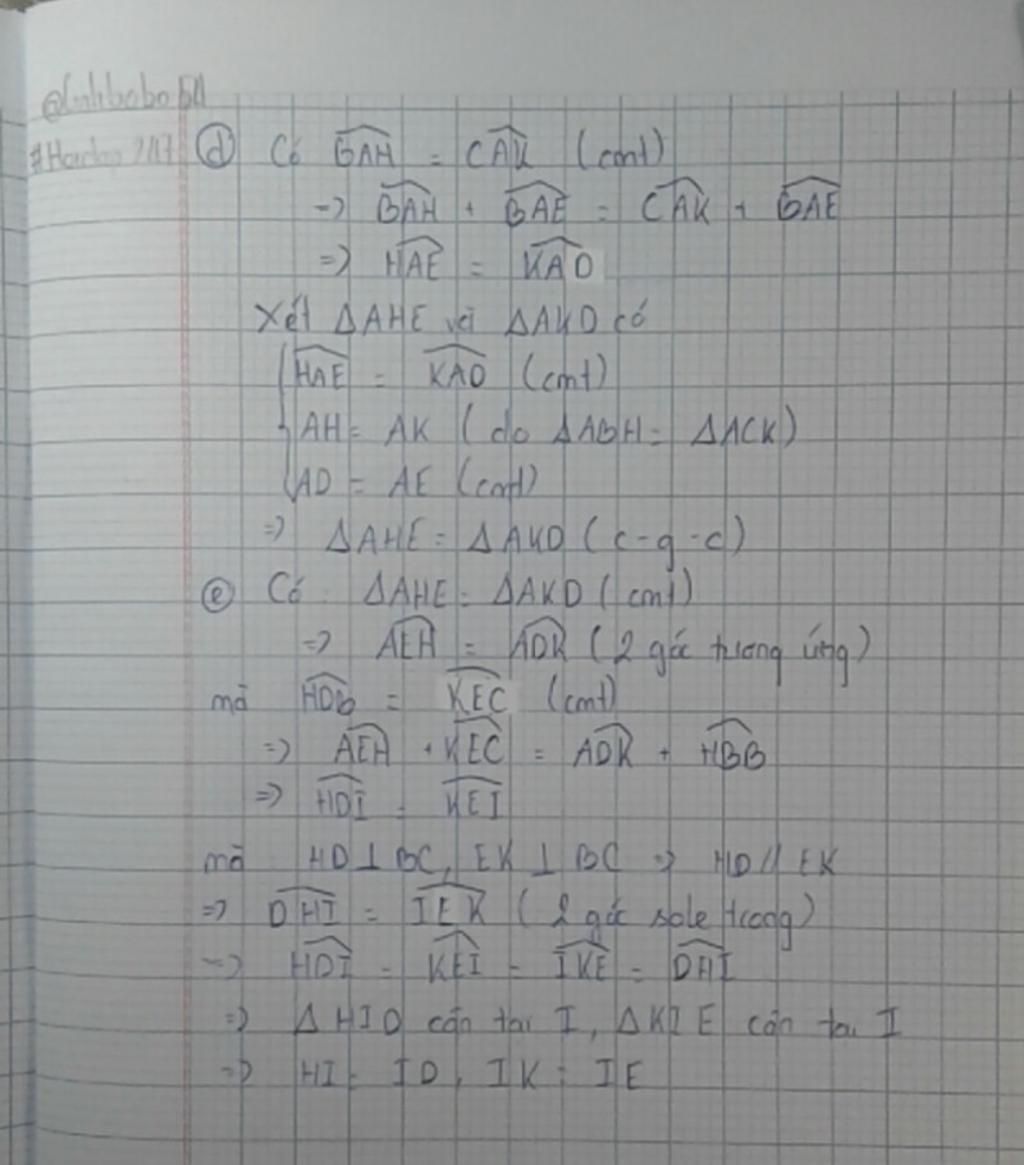 @linhbobo 511
d) Có BAH = CAK (cmt)
=> BAH + BAE = CAK + BAE
=> HAE = KAD
Xét ΔAHE và ΔAKD có
HAE = KAD (cmt)
AH = AK (do ΔABH = ΔACK)
AD = AE (cmt)
=> ΔAHE = ΔAKD (c-g-c)
e) Có ΔAHE = ΔAKD (cmt)
=> AEH = ADK (2 góc tương ứng)
mà HDb = KEC (cmt)
=> AEH + KEC = ADK + HBB
=> HDI = KEI
mà HD ⊥ BC, EK ⊥ BC => HD // EK
=> DHI = IEK (2 góc sole trong)
=> HDI = KEI = IKE = DHI
=> ΔHID cân tại I, ΔKIE cân tại I
=> HI = ID, IK = IE